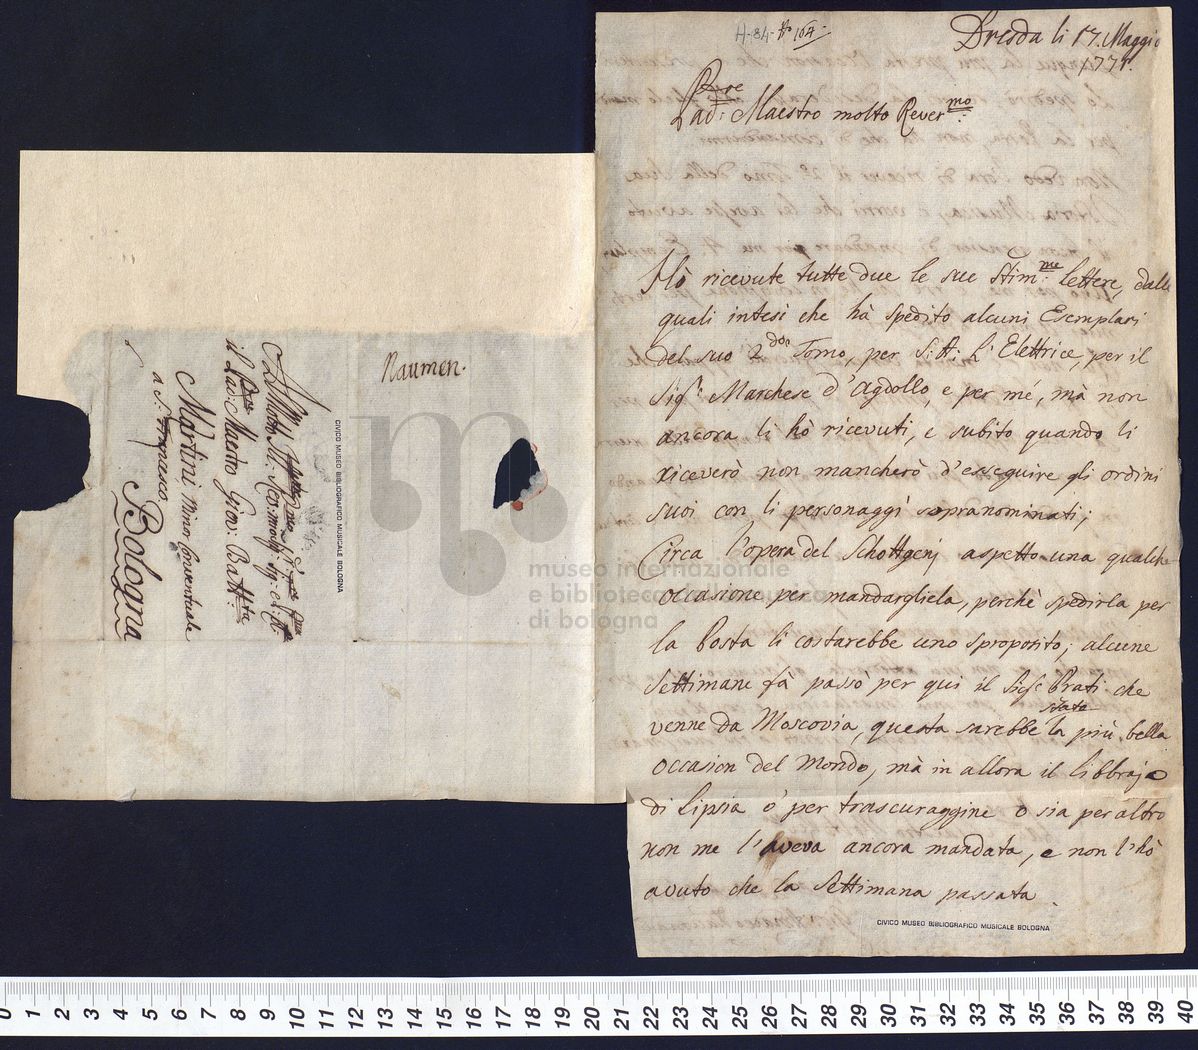 H-84-
164.
Dresda li 17. Maggio
1771.
Pre
Pad: Maestro molto Rever.mo
Hò ricevute tutte due le sue Stim.me lettere, dalle
quali intesi che hà spedito alcuni Esemplari
del suo 2do Tomo, per S: A: L'Elettrice, per il
Sigr: Marchese d'Agdollo, e per mé, mà non
ancora li hò ricevuti, e subito quando li
riceverò non mancherò d'esseguire gli ordini
suoi con li personaggi sopranominati;
Circa l'opera del Schottgenj aspetto una qualche
occasione per mandargliela, perchè spedirla per
la Posta li costarebbe uno sproposito; alcune
Settimane fà passò per qui il Sigr Prati che
venne da Moscovia, questa sarebbe stata la più bella
occasion del Mondo, mà in allora il libbrajo
di Lipsia o' per trascuraggine o sia per altro
non me l'aveva ancora mandata, e non l'hò
avuto che la Settimana passata.
CIVICO MUSEO BIBLIOGRAFICO MUSICALE BOLOGNA
Naumen.
il Pad: Maestro Giov: Batt:ta
Martini, Minor Conventuale
a S: Francesco
Bologna
CIVICO MUSEO BIBLIOGRAFICO MUSICALE BOLOGNA
museo internazionale
e biblioteca della musica
di bologna
0 1 2 3 4 5 6 7 8 9 10 11 12 13 14 15 16 17 18 19 20 21 22 23 24 25 26 27 28 29 30 31 32 33 34 35 36 37 38 39 40